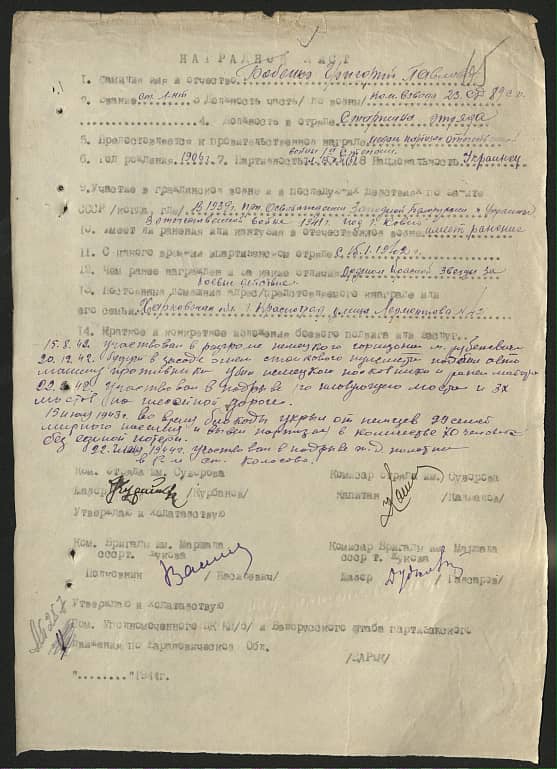 НАГРАДНОЙ ЛИСТ
1. Фамилия имя и отчество Бабенко Григорий Павлович
2. Звание ст. л-нт 3 Должность часть/ по войны/ Ком. взвода 23. СД 89 с.п.
4. Должность в отряде Старшина отряда
5. Предоставляется к правительственной награде медали партизан отечествен.
войны
6. Год рождения 1909г. 7. Партийность 8 Национальность Украинец
9. Участие в гражданской войне и в последующих действиях по защите
СССР /когда, где/ В 1939г. при Освобождении Западной Белоруссии и Украины
В отечественной войне 1941г. под г. Ковель
10. Имеет ли ранения или контузия в отечественной войне имеет ранение
11. С какого времени в партизанском отряде С 15.1.1942г.
12. Чем ранее награжден и за какие отличия Орденом Красной Звезды за
боевые действия
13. Постоянный домашний адрес/предоставляемого к награде или
его семьи Харьковская обл. г. Красноград улица Лермонтова № 42
14. Краткое и конкретное изложение боевого подвига или заслуг.
15.8.42. участвовал в разгроме немецкого гарнизона м. Рубежевичи
20.12.42. будучи в засаде огнем станкового пулемета подбил авто
машину противника убил немецкого полковника и ранен майор
участвовал в подрыве 1го шоссейного моста и 3х
мостов на шоссейной дороге.
1943г. Во время блокады укрыл от немцев 99 семей
мирного населения и вывел партизан в количестве 70 человек
без единой потери.
1944г. участвовал в подрыве ж.д. полотна
в р-не ст. Колосово.
Ком. отряда им. Суворова
Комиссар отряда им. Суворова
Майор /Курбанов/
Капитан
Утверждаю и ходатайствую
Ком. Бригады им. Маршала
Комиссар Бригады им. Маршала
СССР т. Жукова
СССР т. Жукова
Полковник
Майор
Утверждаю и ходатайствую
Пом. Уполномоченного ЦК КП/б/ и Белорусского штаба партизанского
движения по Барановической Обл.
/ЦАРЮК/
"........"1944г.